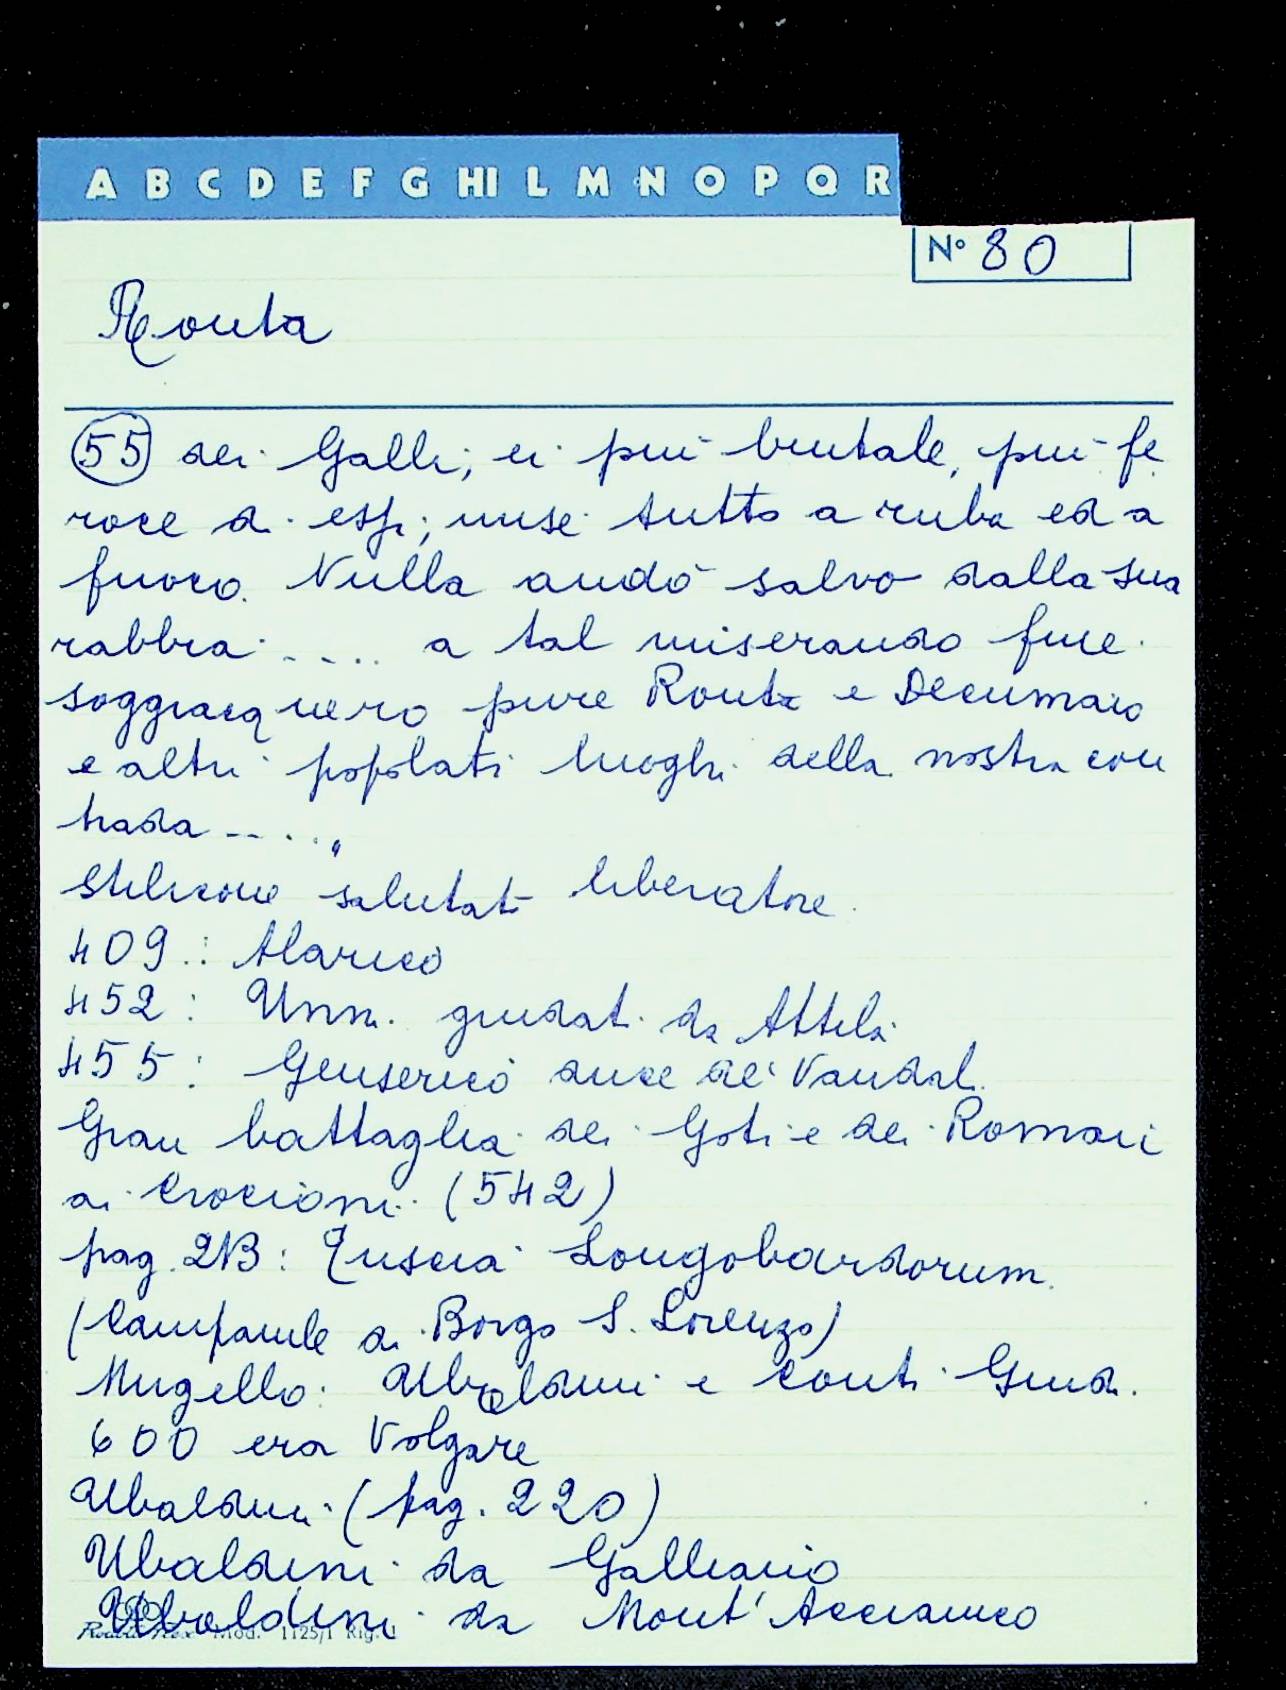 A B C D E F G HI L M N O P Q R
N° 80
Ronta
55 dei Galli; ei più brutale, più fe
roce di essi; mise tutto a ruba ed a
fuoco. Nulla andò salvo dalla sua
rabbia ..... a tal miserando fine
soggiacquero pure Ronta e Decumano
e altri popolati luoghi della nostra con
trada ....."
Stilicone salutato liberatore.
409: Alarico
452: Unni guidati da Attila
455: Genserico duce de' Vandali.
Gran battaglia dei Goti e dei Romani
ai Crocioni (542)
pag. 213: Tuscia Longobardorum.
(Campanile di Borgo S. Lorenzo)
Mugello: Ubaldini e Conti Guidi.
600 era Volgare
Ubaldini (pag. 220)
Ubaldini da Galliano
Ubaldini da Mont'Accianico
Mod. 1125/1 Rig. 1